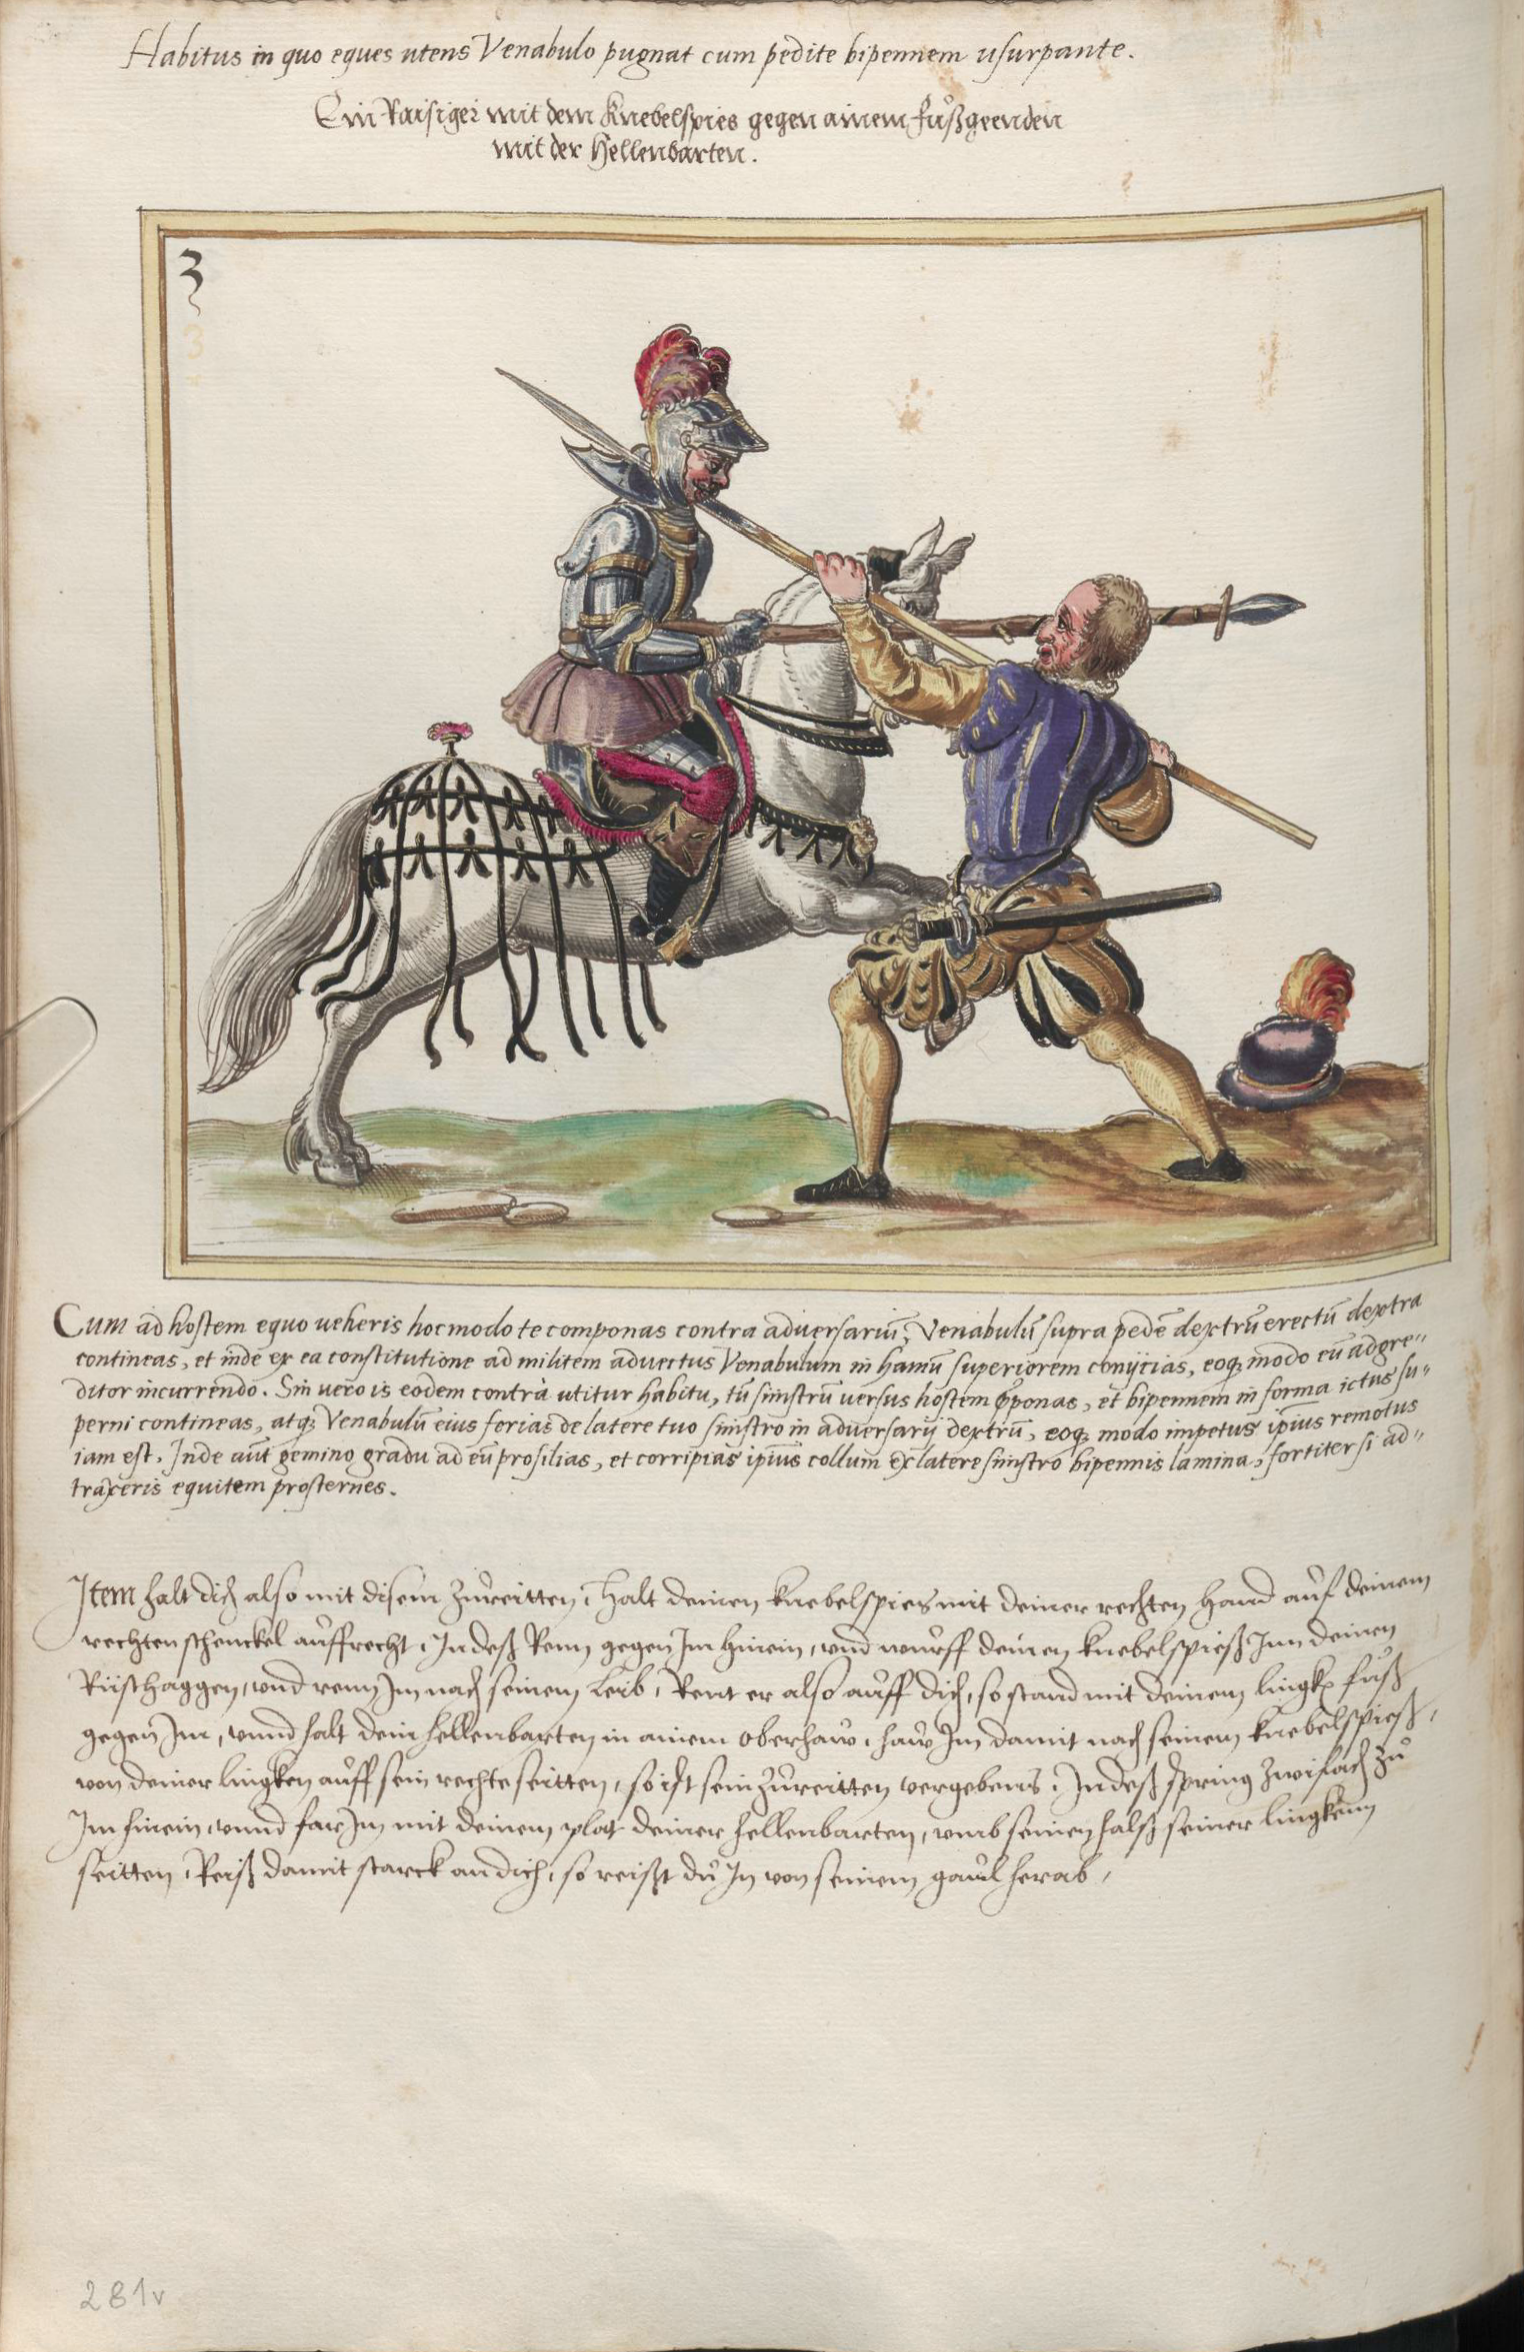 Habitus in quo eques utens Venabulo pugnat cum pedite bipennem usurpante.
Ein Raisiger mit dem Knebelspies gegen ainem fůßgeenden
mit der Hellenbarten.
3
Cum ad hostem equo veheris hoc modo te componas contra adversariū, Venabulū supra pedē dextrū erectū dextra
contineas, et inde ex ea constitutione ad militem advectus Venabulum in hamū superiorem conijcias, eoq; modo eū adgre-
ditor incurrendo. Sin vero is eodem contrà utitur habitu, tū sinistrū versus hostem opponas, et bipennem in forma ictus su-
perni contineas, atq; Venabulū eius ferias de latere tuo sinistro in adversarij dextrū, eoq; modo impetus ipius remotus
iam est. Inde aūt gemino gradu ad eū prosilias, et corripias ipius collum ex latere sinistro bipennis lamina, fortiter si ad-
traxeris equitem prosternes.
Item halt dich also mit disem zůreitten, Halt deinen knebelspies mit deiner rechten hand auf deinem
rechten schenckel auffrecht, Indeß Renn gegen Im hinein, und wurff deinen knebelspieß Inn deinen
Rüsthaggen, und renn Im nach seinem Leib, Rent er also auff dich, so stand mit deinem lingken fůß
gegen Im, unnd halt dein hellenbarten in ainem oberhaw, haw Im damit nach seinem knebelspieß,
von deiner lingken auff sein rechte seitten, so ist sein zůreitten vergebens, Indeß spring zwifach zů
Im hinein, unnd far Im mit deinem plat deiner hellenbarten, umb seinen halß seiner lingkenn
seitten, Reiß damit starck an dich, so reißt du In von seinem gaul herab,
281v